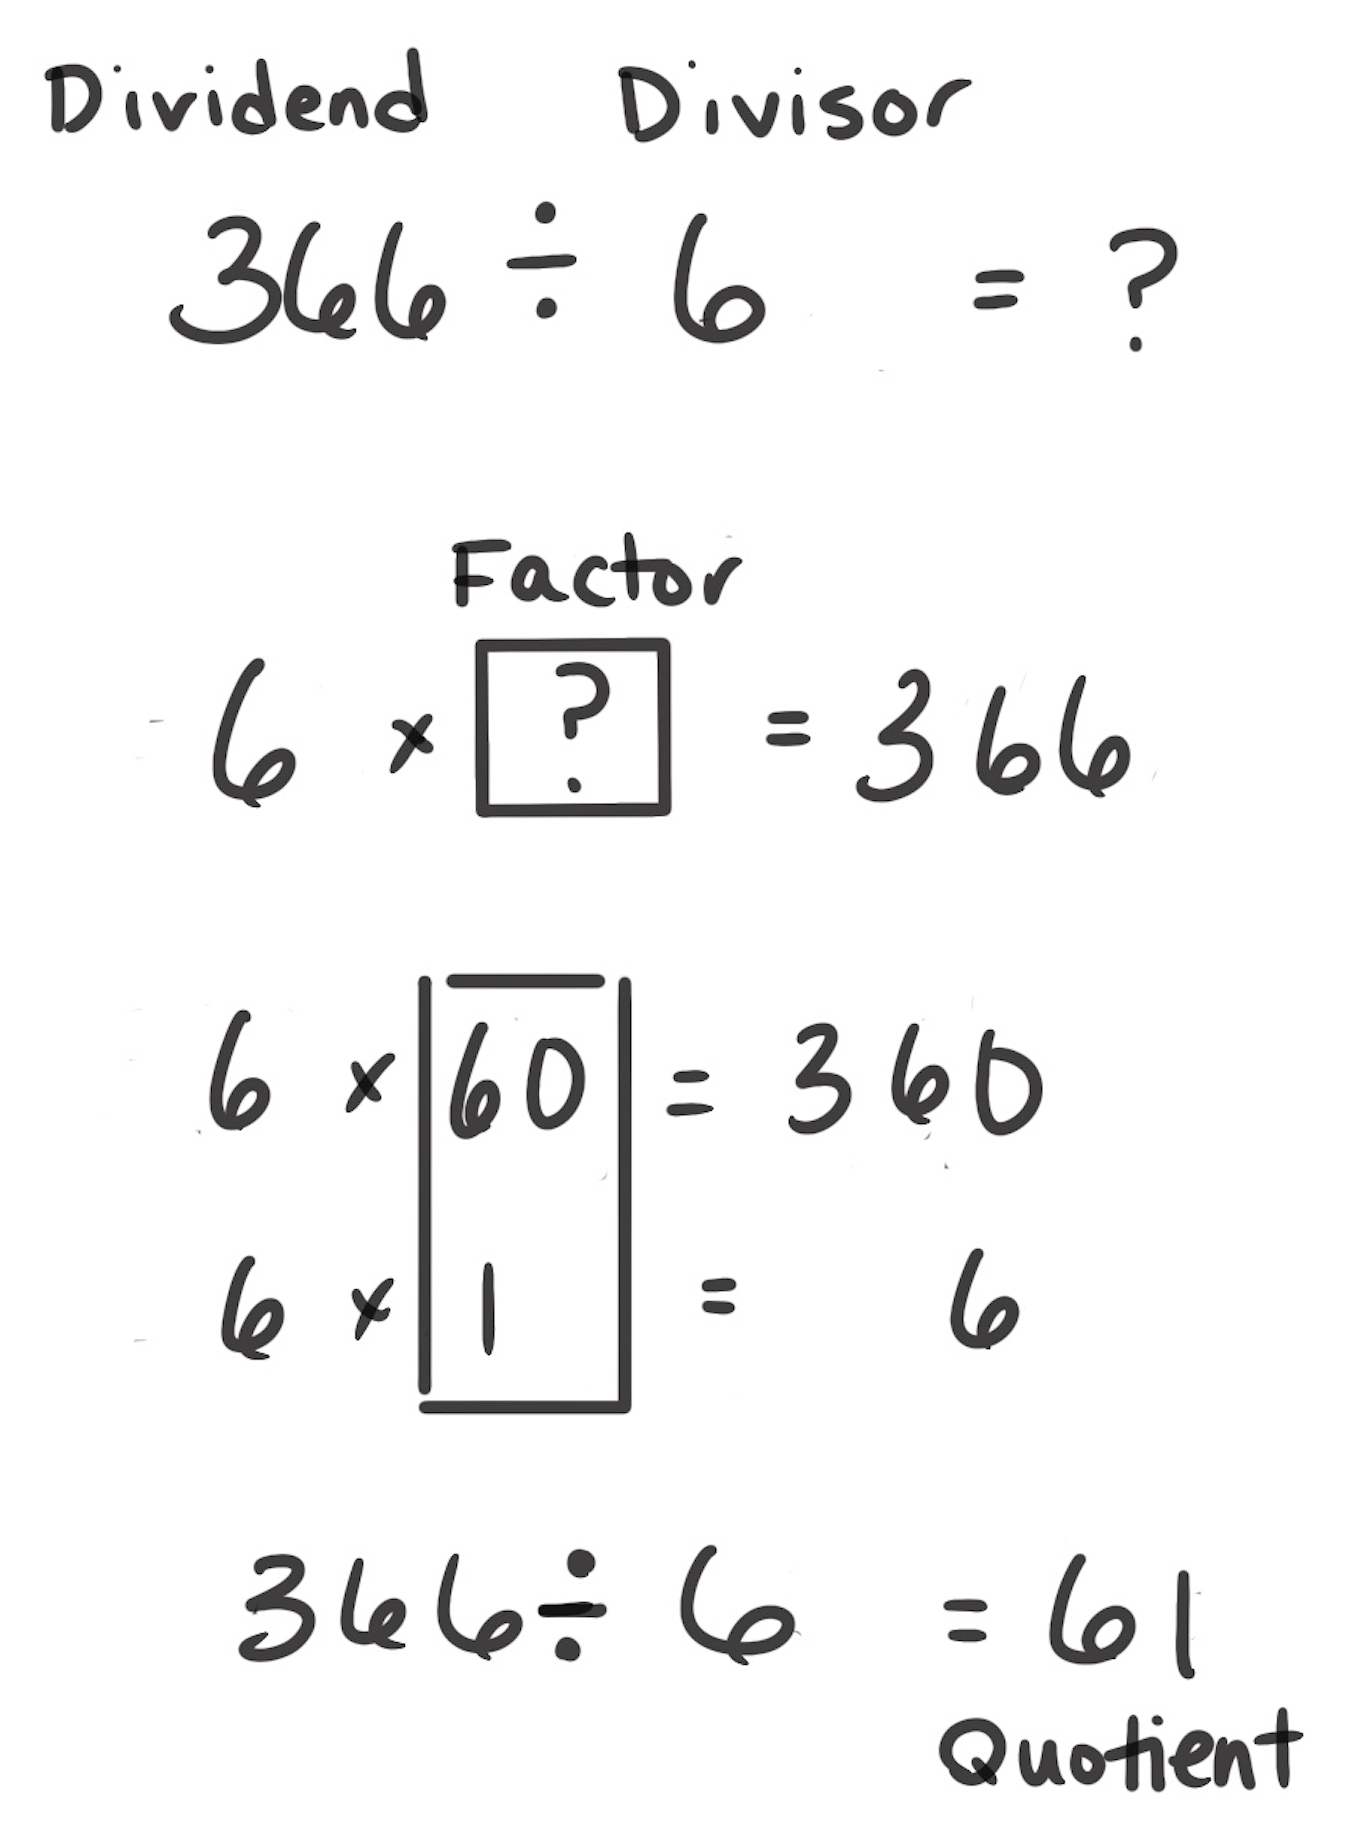 Dividend Divisor
366 ÷ 6 = ?
Factor
6 × ? = 366
6 × 60 = 360
6 × 1 = 6
366 ÷ 6 = 61
Quotient